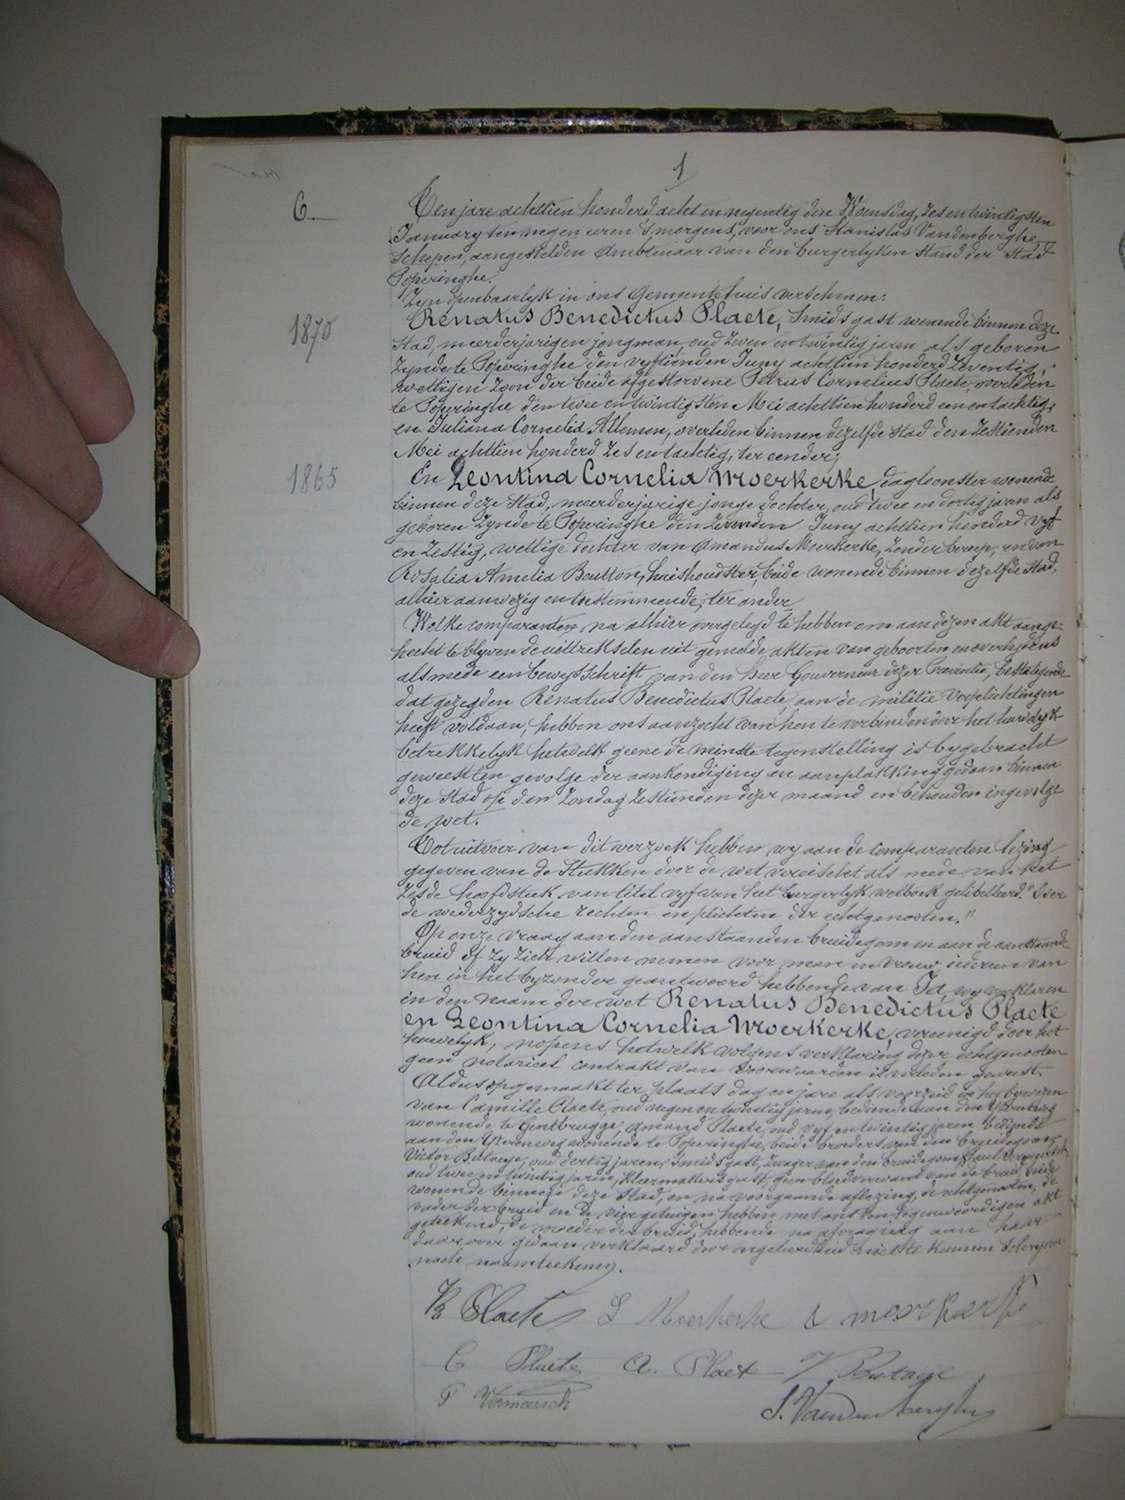 1
6
Ten jare achttien honderd acht en negentig den Woensdag, zes en twintigsten
January ten negen uren 's morgens, voor ons Stanislas Vandenberghe,
Schepen, aangestelden Ambtenaar van den burgerlyken stand der Stad
Poperinghe.
Zyn openbaarlyk in ons Gemeentehuis verschenen:
1870
Renatus Benedictus Plaete, Smids gast wonende binnen deze
Stad, meerderjarigen jongman, oud zeven en twintig jaren als geboren
zynde te Poperinghe den vyftienden Juny achttien honderd zeventig,
wettigen zoon der beide afgestorvene Petrus Cornelius Plaete, overleden
te Poperinghe den twee en twintigsten Mei achttien honderd een en tachtig,
en Juliana Cornelia Alleman, overleden binnen dezelfde Stad den zestienden
Mei achttien honderd zes en tachtig, ter eender;
1865
En Leontina Cornelia Moerkerke, dagloonster wonende
binnen deze Stad, meerderjarige jonge dochter, oud twee en dertig jaren als
geboren zynde te Poperinghe den Juny achttien honderd vyf
en zestig, wettige dochter van Amandus Moerkerke, zonder beroep, en van
Rosalia Amelia Boutton, huishoudster, beide wonende binnen dezelfde Stad,
alhier aanwezig en toestemmende, ter ander
Welke comparanten na alhier overgelegd te hebben om aan dezen akt aange-
hecht te blyven de uittrekselen uit gemelde akten van geboorten en overlydens
alsmede een bewysschrift van den heer Gouverneur dezer Provintie, bestatigende
dat gezegden Renatus Benedictus Plaete aan de militie verplichtingen
heeft voldaan, hebben ons aanzocht van hen te verbinden door het huwelyk
betrekkelyk hetwelk geene de minste tegenstelling is bygebracht
geweest ten gevolge der aankondiging en aanplakking gedaan binnen
deze Stad op den Zondag zestienden dezer maand en behouden ingevolge
de wet.
Tot uitvoer van dit verzoek hebben wy aan de comparanten lezing
gegeven van de stukken door de wet vereischt als mede van het
zesde hoofdstuk van titel vyf van het burgerlyk wetboek getiteld "Over
de wederzydsche rechten en plichten der echtgenooten."
Op onze vraag aan den aanstaanden bruidegom en aan de aanstaande
bruid of zy zich willen nemen voor man en vrouw, iedereen van
hen in het byzonder geantwoord hebbende van Ja, wy verklaren
in den naam der wet Renatus Benedictus Plaete
en Leontina Cornelia Moerkerke, vereenigd door het
huwelyk, nopens hetwelk volgens verklaring dezer echtgenooten
geen notarieel contrakt van voorwaarden is verleden geweest.
Aldus opgemaakt ter plaats dag en jare als voorzeid in het bywezen
van Camille Plaete, oud negen en twintig jaren, bediende aan den Yzerenweg
wonende te Gentbrugge, Amand Plaete, oud vyf en twintig jaren bediende
aan den Yzerenweg wonende te Poperinghe, beide broeders van den bruidegom,
Victor Butaye, oud dertig jaren, Smids gast, zwager van den bruidegom, Paul Vermeersch
oud twee en twintig jaren, kleermakers gast, geen bloedverwant van de bruid, beide
wonende binnen deze Stad, en na voorgaande aflezing, de echtgenooten, de
vader der bruid en de vier getuigen hebben met ons den tegenwoordigen akt
geteekend, de moeder der bruid, hebbende na afvraging aan haar
daarover gedaan verklaard door ongeleerdheid niet te kunnen schryven
noch naamteekenen.
R Plaete L Moerkerke A moerkerke
C Plaete A. Plaete V Butaye
P Vermeersch S. Vandenberghe